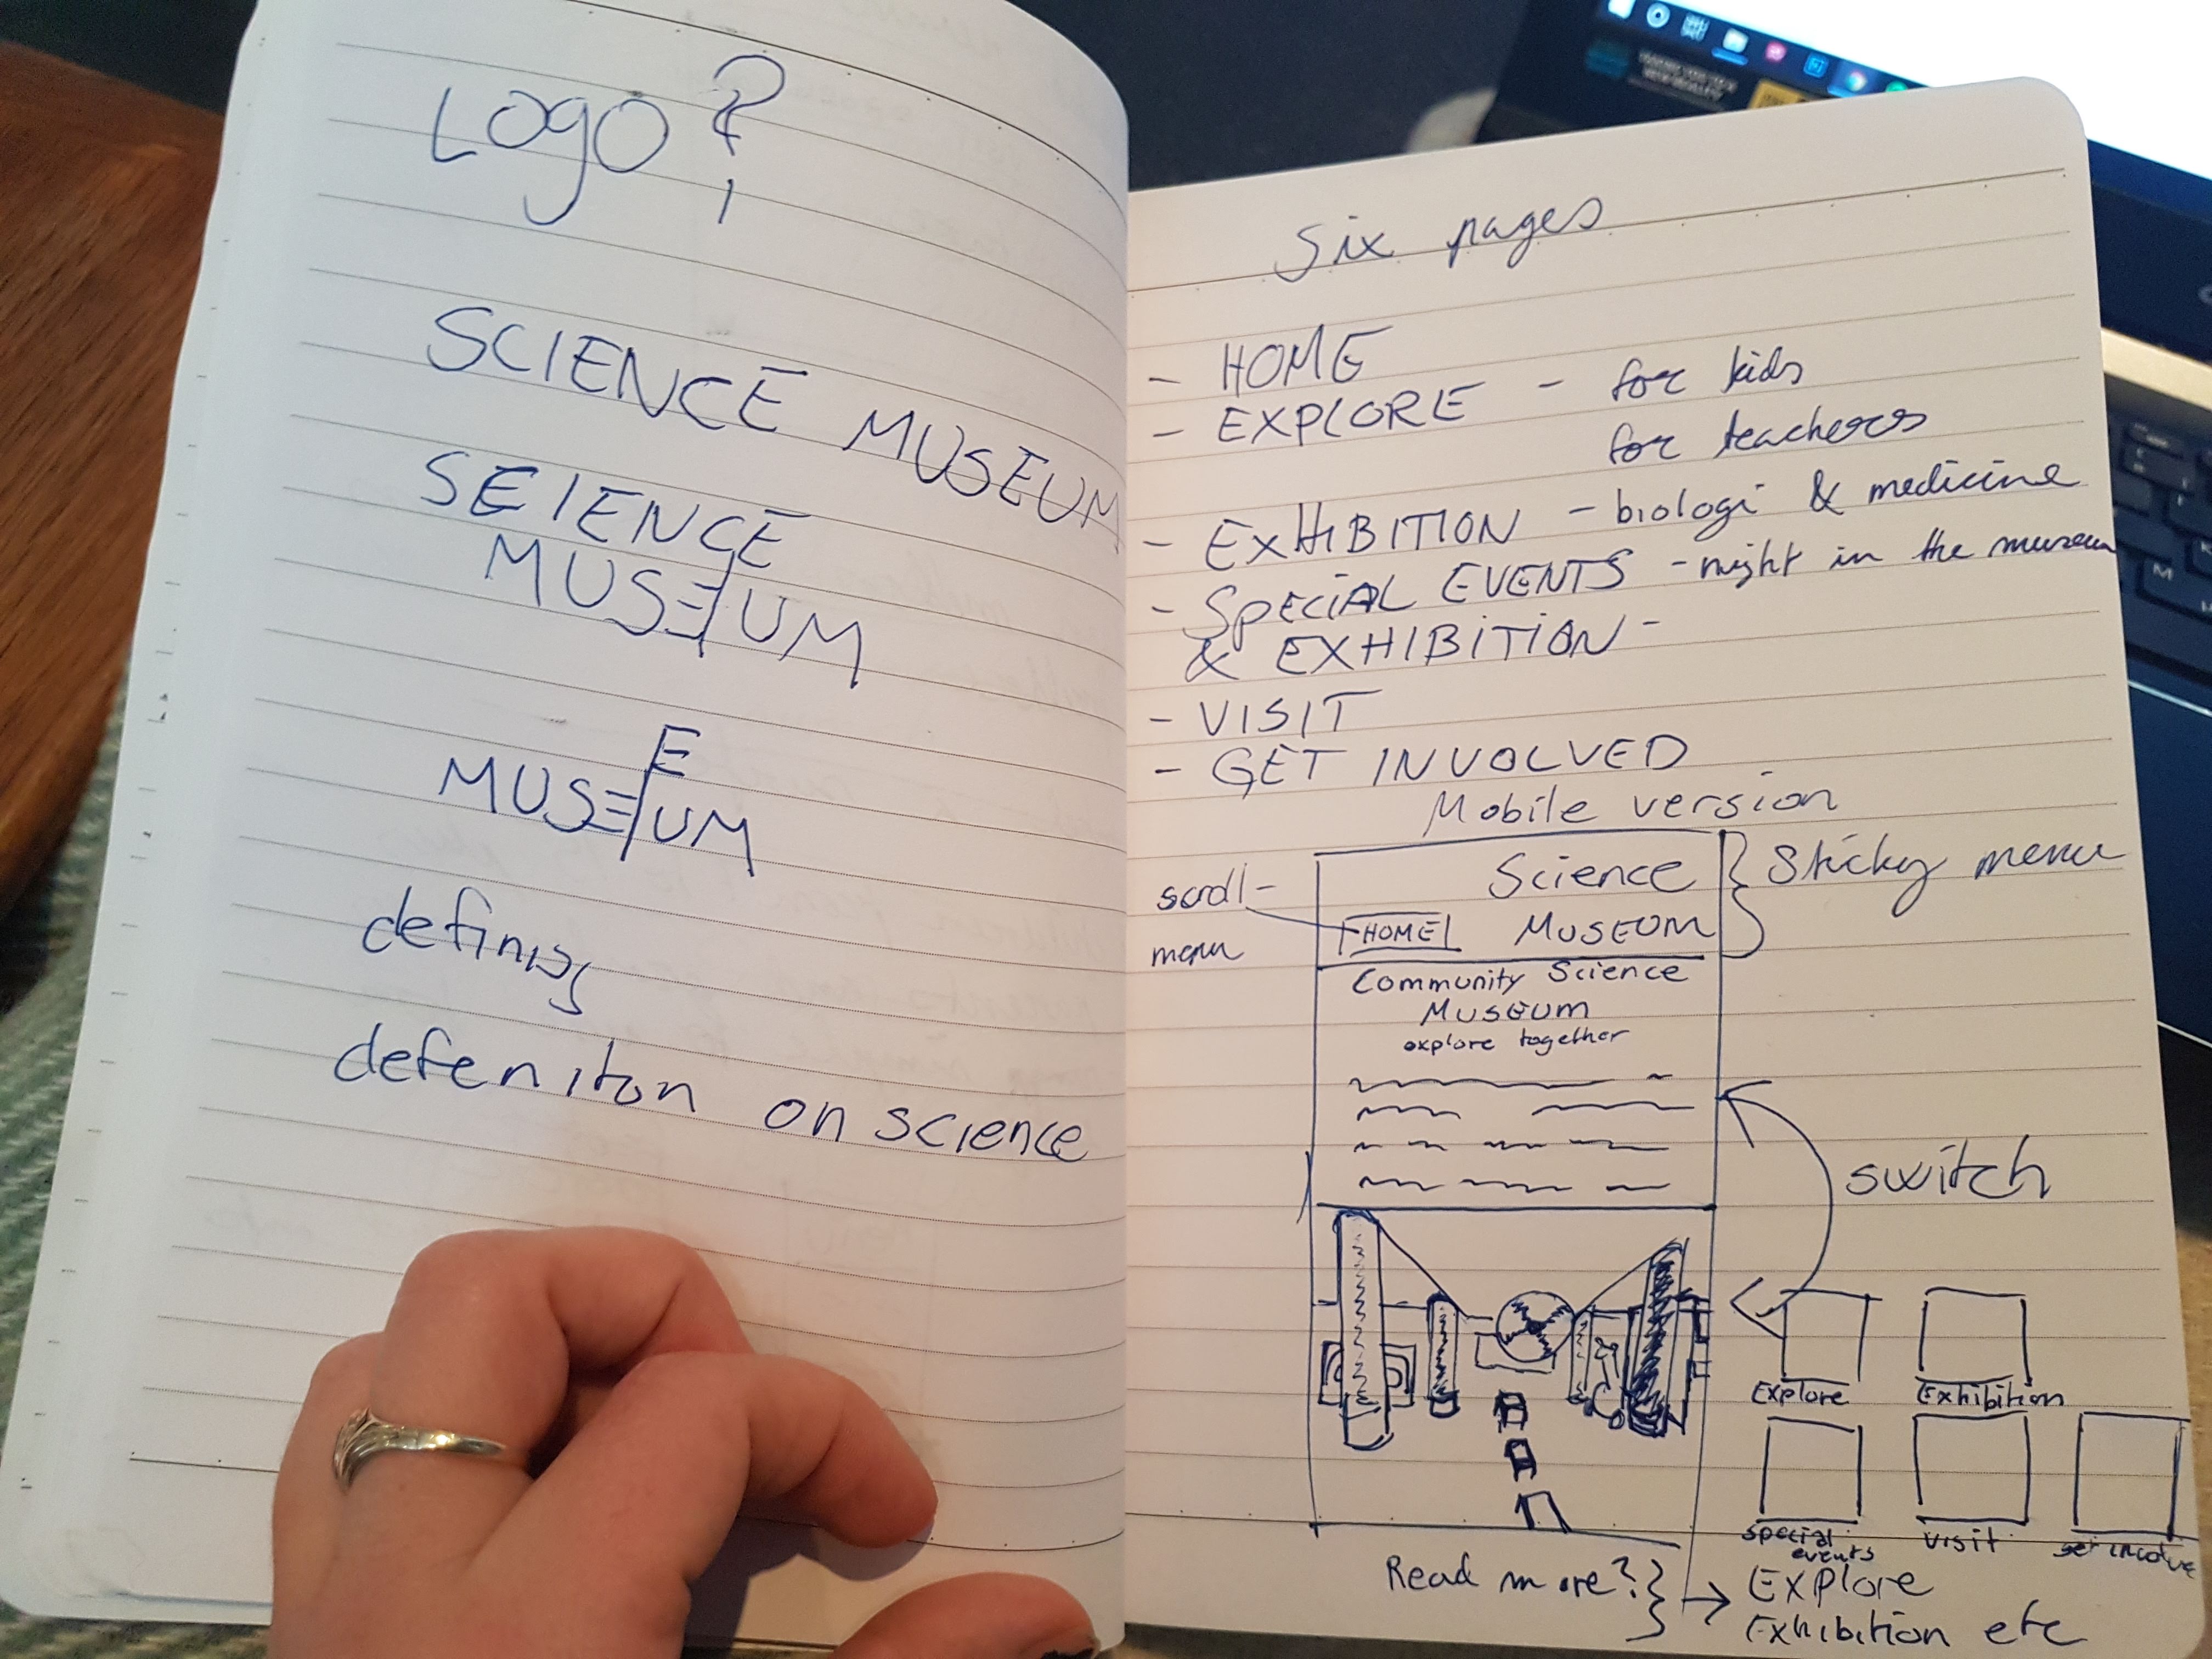 Logo?
SCIENCE MUSEUM
SEIENCE
MUSEUM
E
MUSEUM
defining
defeniton on science
Six pages
- HOME
- EXPLORE - for kids
for teachers
- EXHIBITION - biologi & medicine
- SPECIAL EVENTS - night in the museum
& EXHIBITION -
- VISIT
- GET INVOLVED
Mobile version
Science
MUSEUM
Sticky menu
scroll-
menu
HOME
Community Science
MUSEUM
explore together
switch
Explore
Exhibition
special
events
visit
get involve
Read more?
Explore
Exhibition etc
M